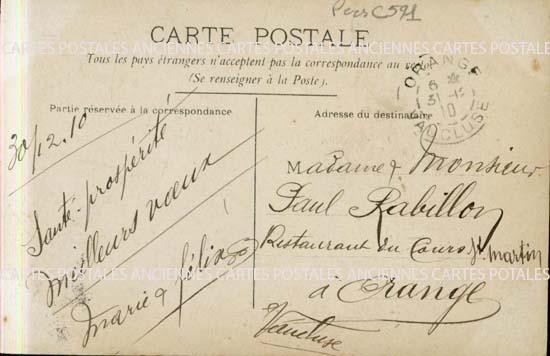 Pers C591
CARTE POSTALE
Tous les pays étrangers n'acceptent pas la correspondance au
(Se renseigner à la Poste).
Partie réservée à la correspondance
30/12.10
Santé - prospérité
meilleurs vœux
Marie & félix
Adresse du destinataire
Madame & Monsieur
Paul Rabillon
Restaurant du Cours St Martin
à Orange
Vaucluse
ORANGE
6
31 -12
10
VAUCLUSE
CARTES POSTALES ANCIENNES CARTES POSTALES ANCIENNES CARTES POTALES
CARTES POSTALES ANCIENNES CARTES POSTALES ANCIENNES CARTES POTALES